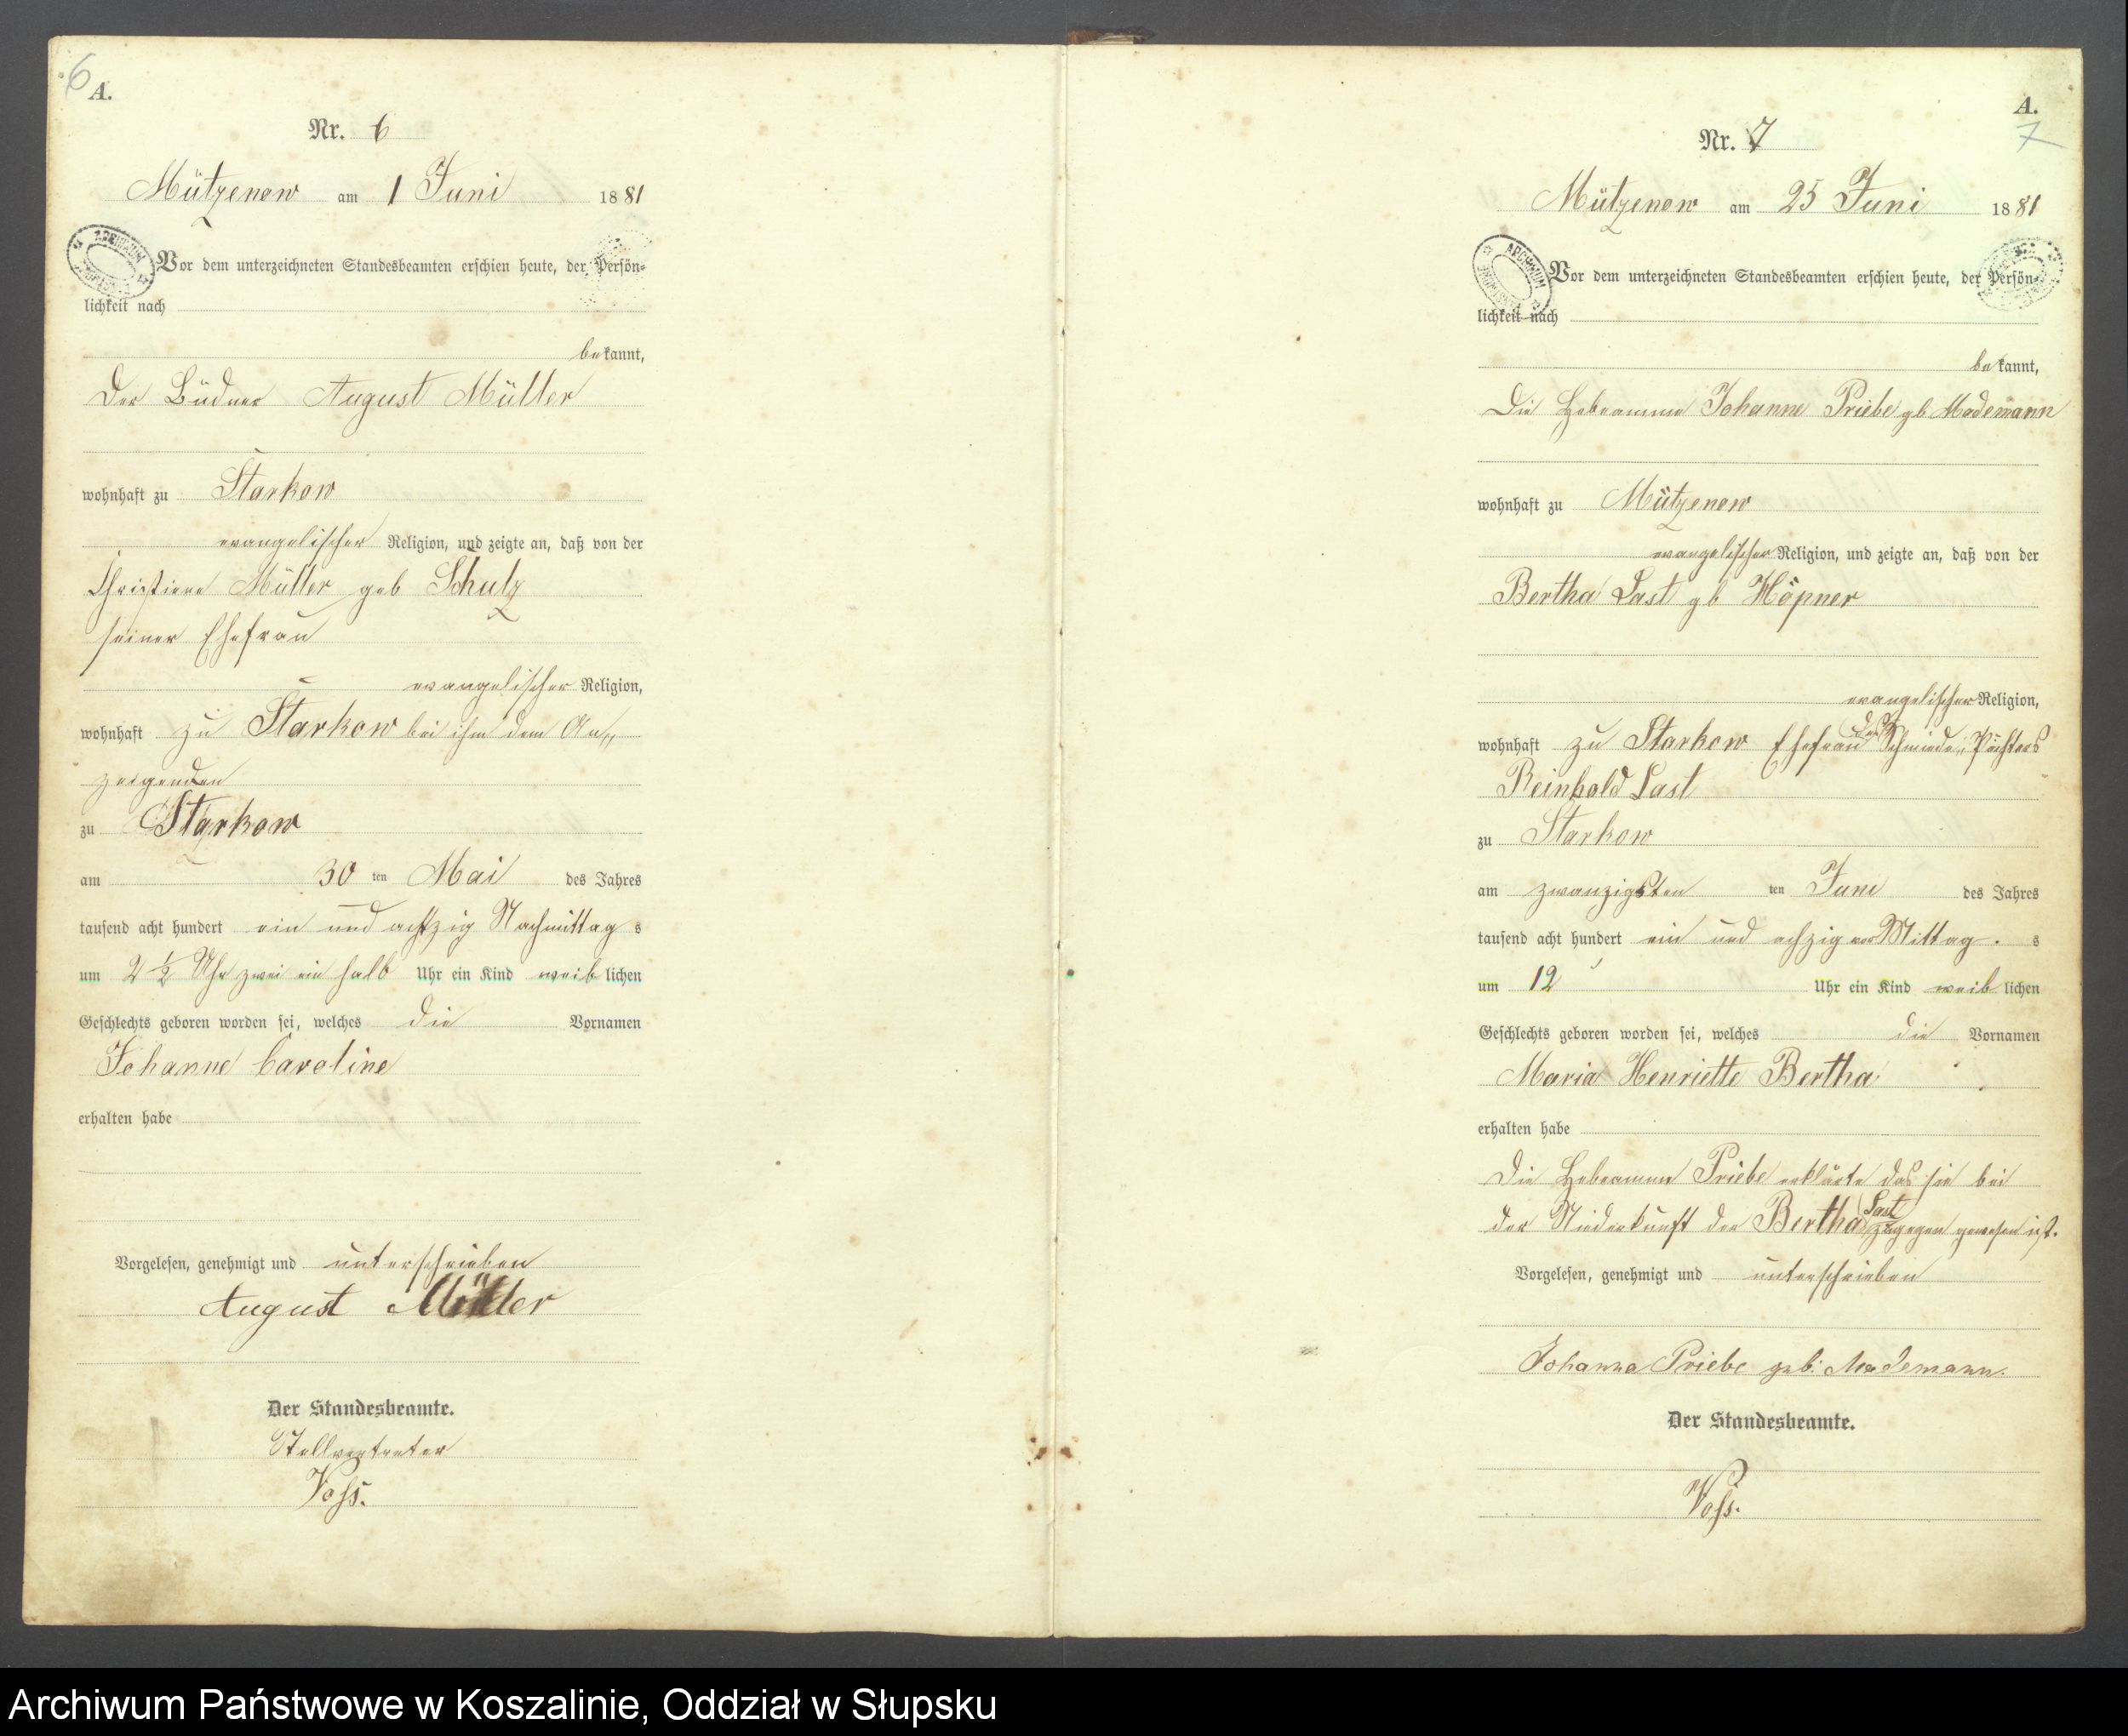 6
A.
Nr. 6
Mützenow am 1 Juni 1881
Vor dem unterzeichneten Standesbeamten erschien heute, der Persön=
lichkeit nach
bekannt,
Der Büdner August Müller
wohnhaft zu Starkow
evangelischer Religion, und zeigte an, daß von der
Christiene Müller geb Schulz
seiner Ehefrau
evangelischer Religion,
wohnhaft zu Starkow bei ihm dem An„
zeigenden
zu Starkow
am 30 ten Mai des Jahres
tausend acht hundert ein und achtzig Nachmittag s
um 2 ½ Uhr zwei ein halb Uhr ein Kind weiblichen
Geschlechts geboren worden sei, welches die Vornamen
Johanne Caroline
erhalten habe
Vorgelesen, genehmigt und unterschrieben
August Müller
Der Standesbeamte.
Stellvertreter
Voß.
A.
7
Nr. 7
Mützenow am 25 Juni 1881
ARCHIWUM
Vor dem unterzeichneten Standesbeamten erschien heute, der Persön=
lichkeit nach
bekannt,
Die Hebeamme Johanne Priebe gb Mademann
wohnhaft zu Mützenow
evangelischer Religion, und zeigte an, daß von der
Bertha Last gb Höpner
evangelischer Religion,
wohnhaft zu Starkow Ehefrau des Schmiede„Pächters
Reinhold Last
zu Starkow
am zwanzigsten ten Juni des Jahres
tausend acht hundert ein und achzig vor Mittag. s
um 12 Uhr ein Kind weiblichen
Geschlechts geboren worden sei, welches die Vornamen
Maria Henriette Bertha
erhalten habe
Die Hebeamme Priebe erklärte das sie bei
der Niederkunft der Bertha Last zugegen gewesen ist.
Vorgelesen, genehmigt und unterschrieben
Johanna Priebe geb. Mademann.
Der Standesbeamte.
Voß.
Archiwum Państwowe w Koszalinie, Oddział w Słupsku